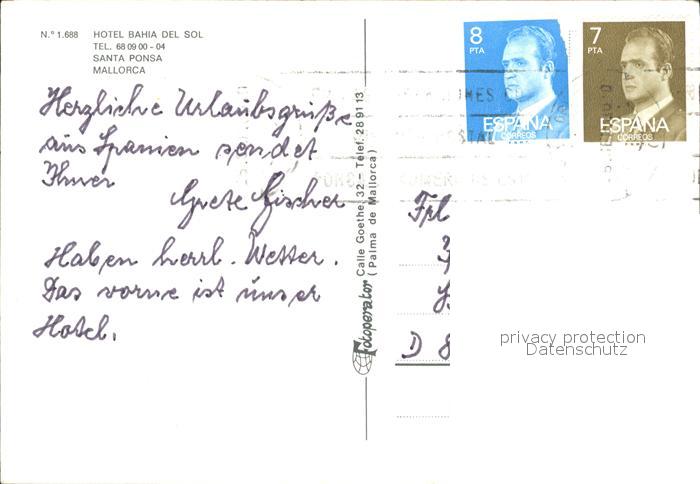 N.º 1.688 HOTEL BAHIA DEL SOL
TEL. 68 09 00 - 04
SANTA PONSA
MALLORCA
Herzliche Urlaubsgrüße
aus Spanien sendet
Ihnen
Grete Fischer
Haben herrl. Wetter.
Das vorne ist unser
Hotel.
Fotoperator Calle Goethe, 32 - Telef. 28 91 13
(Palma de Mallorca)
8
PTA
ESPAÑA
CORREOS
7
PTA
ESPAÑA
CORREOS
D 8
privacy protection
Datenschutz